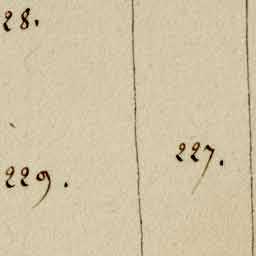 28.
227.
229.